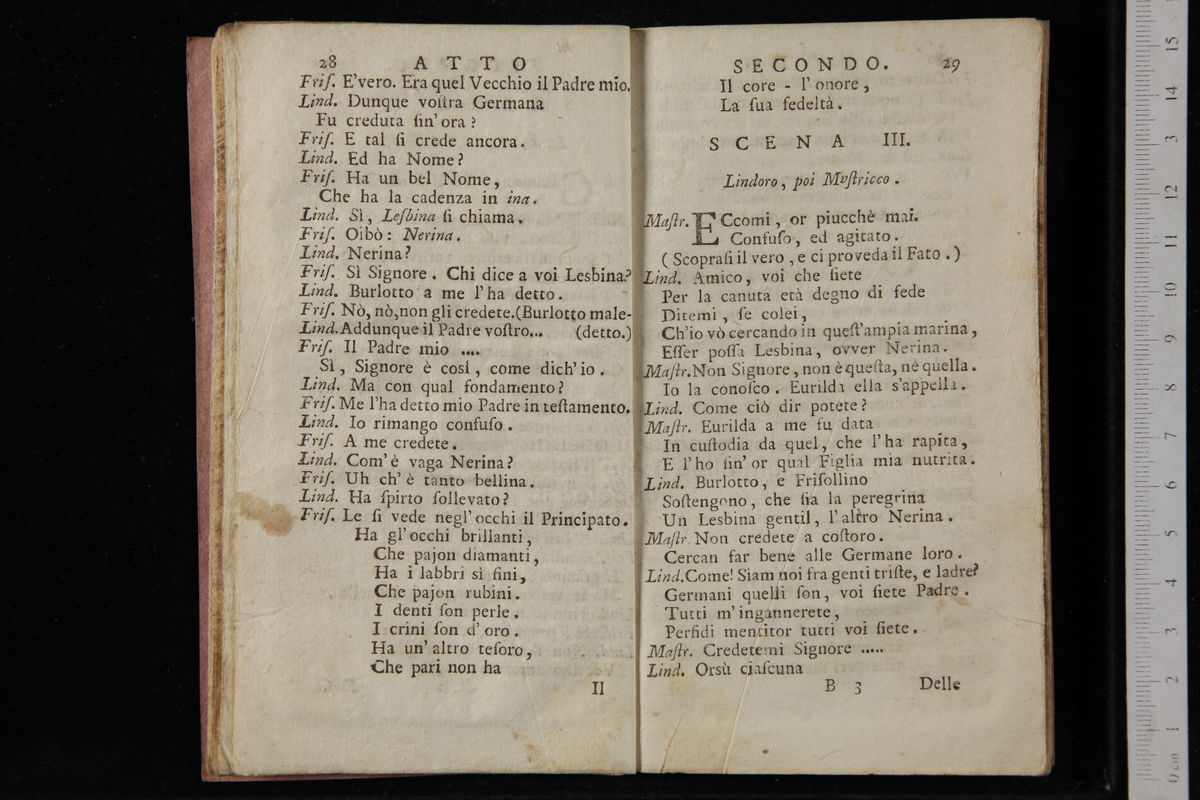 28 ATTO
Friſ. E'vero. Era quel Vecchio il Padre mio.
Lind. Dunque voſtra Germana
Fu creduta ſin' ora ?
Friſ. E tal ſi crede ancora.
Lind. Ed ha Nome ?
Friſ. Ha un bel Nome,
Che ha la cadenza in ina.
Lind. Sì, Leſbina ſi chiama.
Friſ. Oibò : Nerina.
Lind. Nerina ?
Friſ. Sì Signore. Chi dice a voi Lesbina?
Lind. Burlotto a me l'ha detto.
Friſ. Nò, nò,non gli credete.(Burlotto male-
Lind. Addunque il Padre voſtro... (detto.)
Friſ. Il Padre mio ....
Sì, Signore è così, come dich' io.
Lind. Ma con qual fondamento ?
Friſ. Me l'ha detto mio Padre in teſtamento.
Lind. Io rimango confuſo.
Friſ. A me credete.
Lind. Com' è vaga Nerina ?
Friſ. Uh ch' è tanto bellina.
Lind. Ha ſpirto ſollevato ?
Friſ. Le ſi vede negl' occhi il Principato.
Ha gl' occhi brillanti,
Che pajon diamanti,
Ha i labbri sì fini,
Che pajon rubini.
I denti ſon perle.
I crini ſon d' oro.
Ha un' altro teſoro,
Che pari non ha
Il
SECONDO. 29
Il core - l' onore,
La ſua fedeltà.
SCENA III.
Lindoro, poi Maſtricco.
Maſtr. ECcomi, or piucchè mai.
Confuſo, ed agitato.
( Scopraſi il vero, e ci proveda il Fato. )
Lind. Amico, voi che ſiete
Per la canuta età degno di fede
Ditemi, ſe colei,
Ch'io vò cercando in queſt'ampia marina,
Eſſer poſſa Lesbina, ovver Nerina.
Maſtr. Non Signore, non è queſta, nè quella.
Io la conoſco. Eurilda ella s'appella.
Lind. Come ciò dir potete ?
Maſtr. Eurilda a me fu data
In cuſtodia da quel, che l'ha rapita,
E l'ho ſin' or qual Figlia mia nutrita.
Lind. Burlotto, e Friſollino
Soſtengono, che ſia la peregrina
Un Lesbina gentil, l'altro Nerina.
Maſtr. Non credete a coſtoro.
Cercan far bene alle Germane loro.
Lind. Come! Siam noi fra genti triſte, e ladre?
Germani quelli ſon, voi ſiete Padre.
Tutti m'ingannerete,
Perfidi mentitor tutti voi ſiete.
Maſtr. Credetemi Signore .....
Lind. Orsù ciaſcuna
B 3 Delle
15
14
13
12
11
10
9
8
7
6
5
4
3
2
1
0 cm